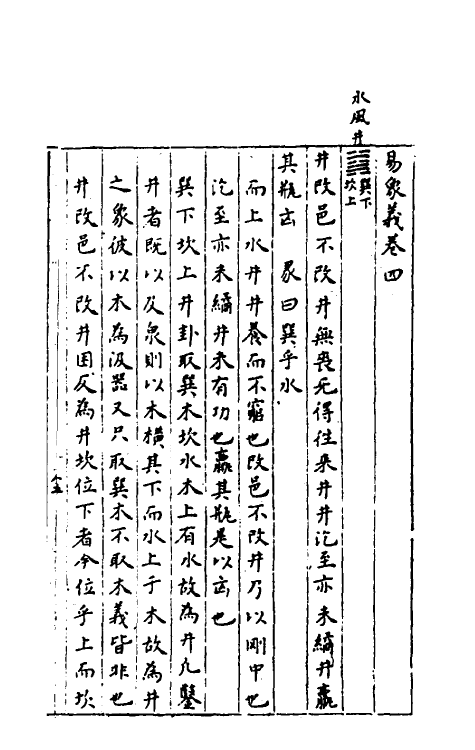 易象義卷四
水風井
䷯巽下坎上
井改邑不改井無喪无得往来井井汔至亦未繘井羸
其瓶凶　彖曰巽乎水
而上水井井養而不窮也改邑不改井乃以剛中也
汔至亦未繘井未有功也羸其瓶是以凶也
巽下坎上井卦取巽木坎水木上有水故為井凡鑿
井者既以及泉則以木橫其下而水上于木故為井
之象彼以木為汲器又只取巽木不取木義皆非也
井改邑不改井困反為井坎位下者今位乎上而坎